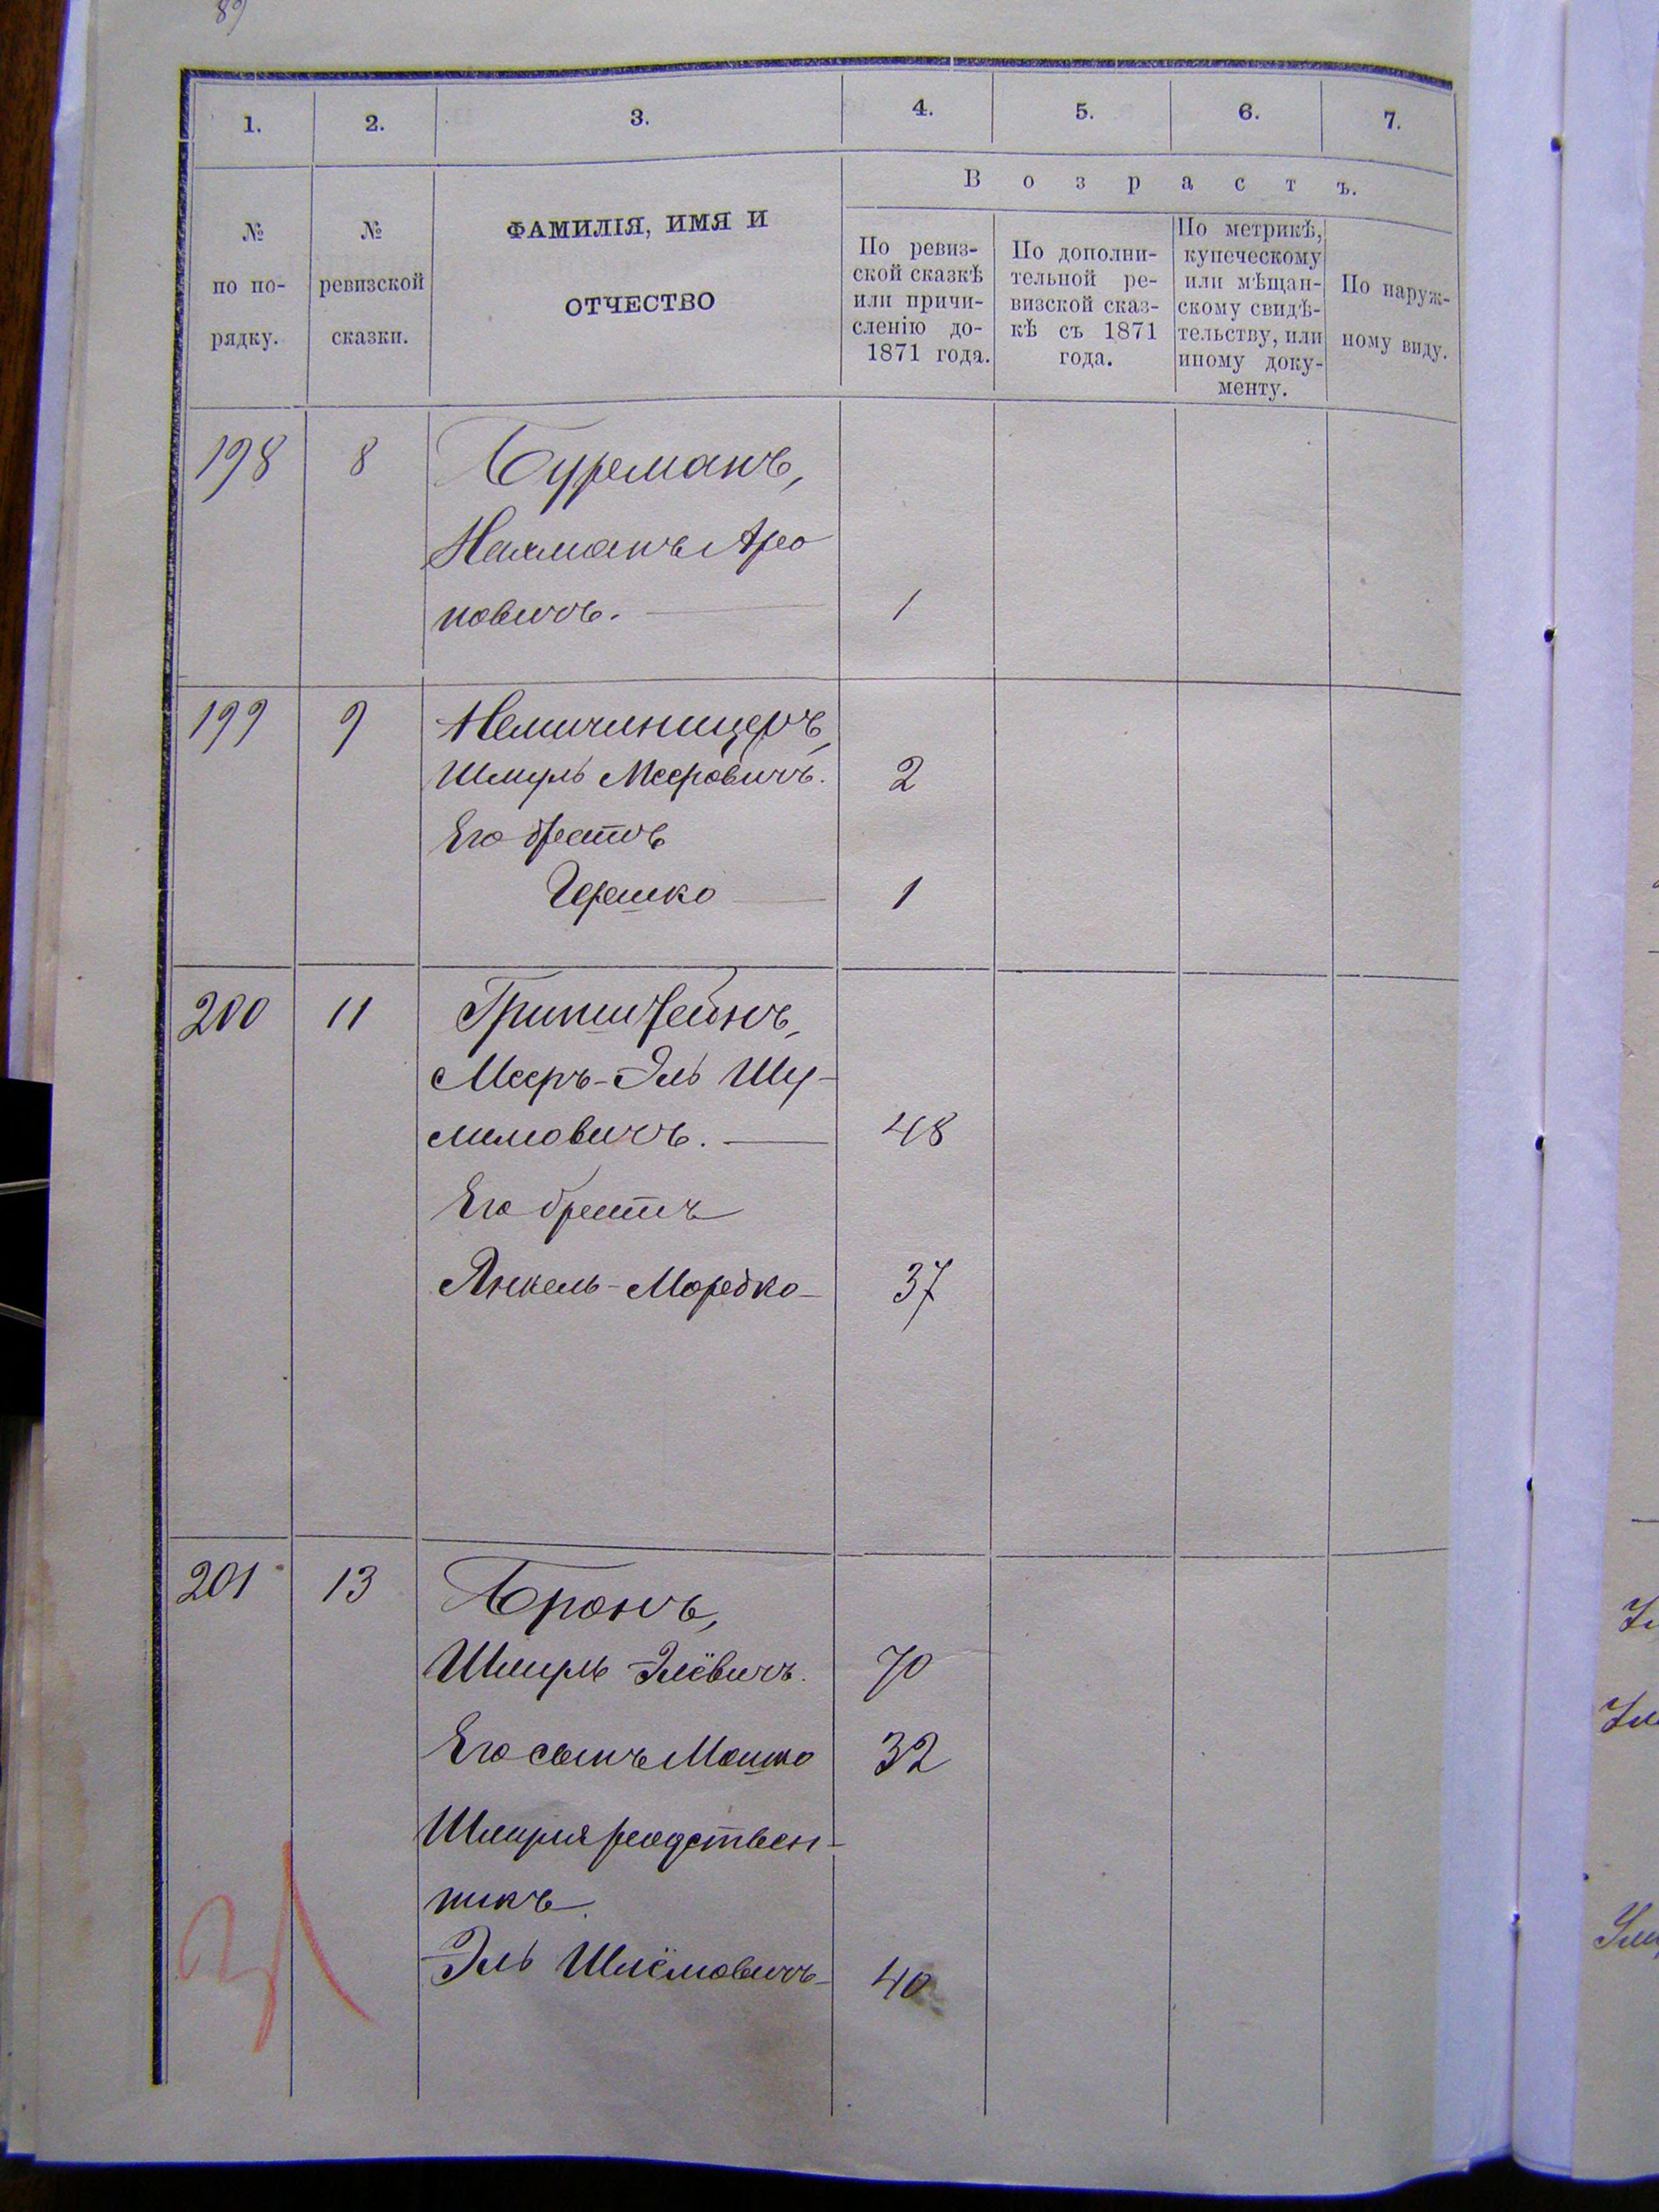 89
1. 2. 3. 4. 5. 6. 7.
В о з р а с т ъ.
№
по по-
рядку.
№
ревизской
сказки.
ФАМИЛІЯ, ИМЯ И
ОТЧЕСТВО
По ревиз-
ской сказкѣ
или причи-
сленію до-
1871 года.
По дополни-
тельной ре-
визской сказ-
кѣ съ 1871
года.
По метрикѣ,
купеческому
или мѣщан-
скому свидѣ-
тельству, или
иному доку-
менту.
По наруж-
ному виду.
198 8 Бурманъ,
Нахманъ Аро
новичъ. 1
199 9
Шмуль Мееровичъ. 2
Его братъ
Гершко 1
200 11 Гринштейнъ,
Мееръ-Эль Шу-
лимовичъ. 48
Его братъ
Янкель-Мордко 37
201 13 Бронъ,
Шмуль Элёвичъ. 70
Его сынъ Мошко 32
Шмуля родствен-
никъ
Эль Шлёмовичъ 40